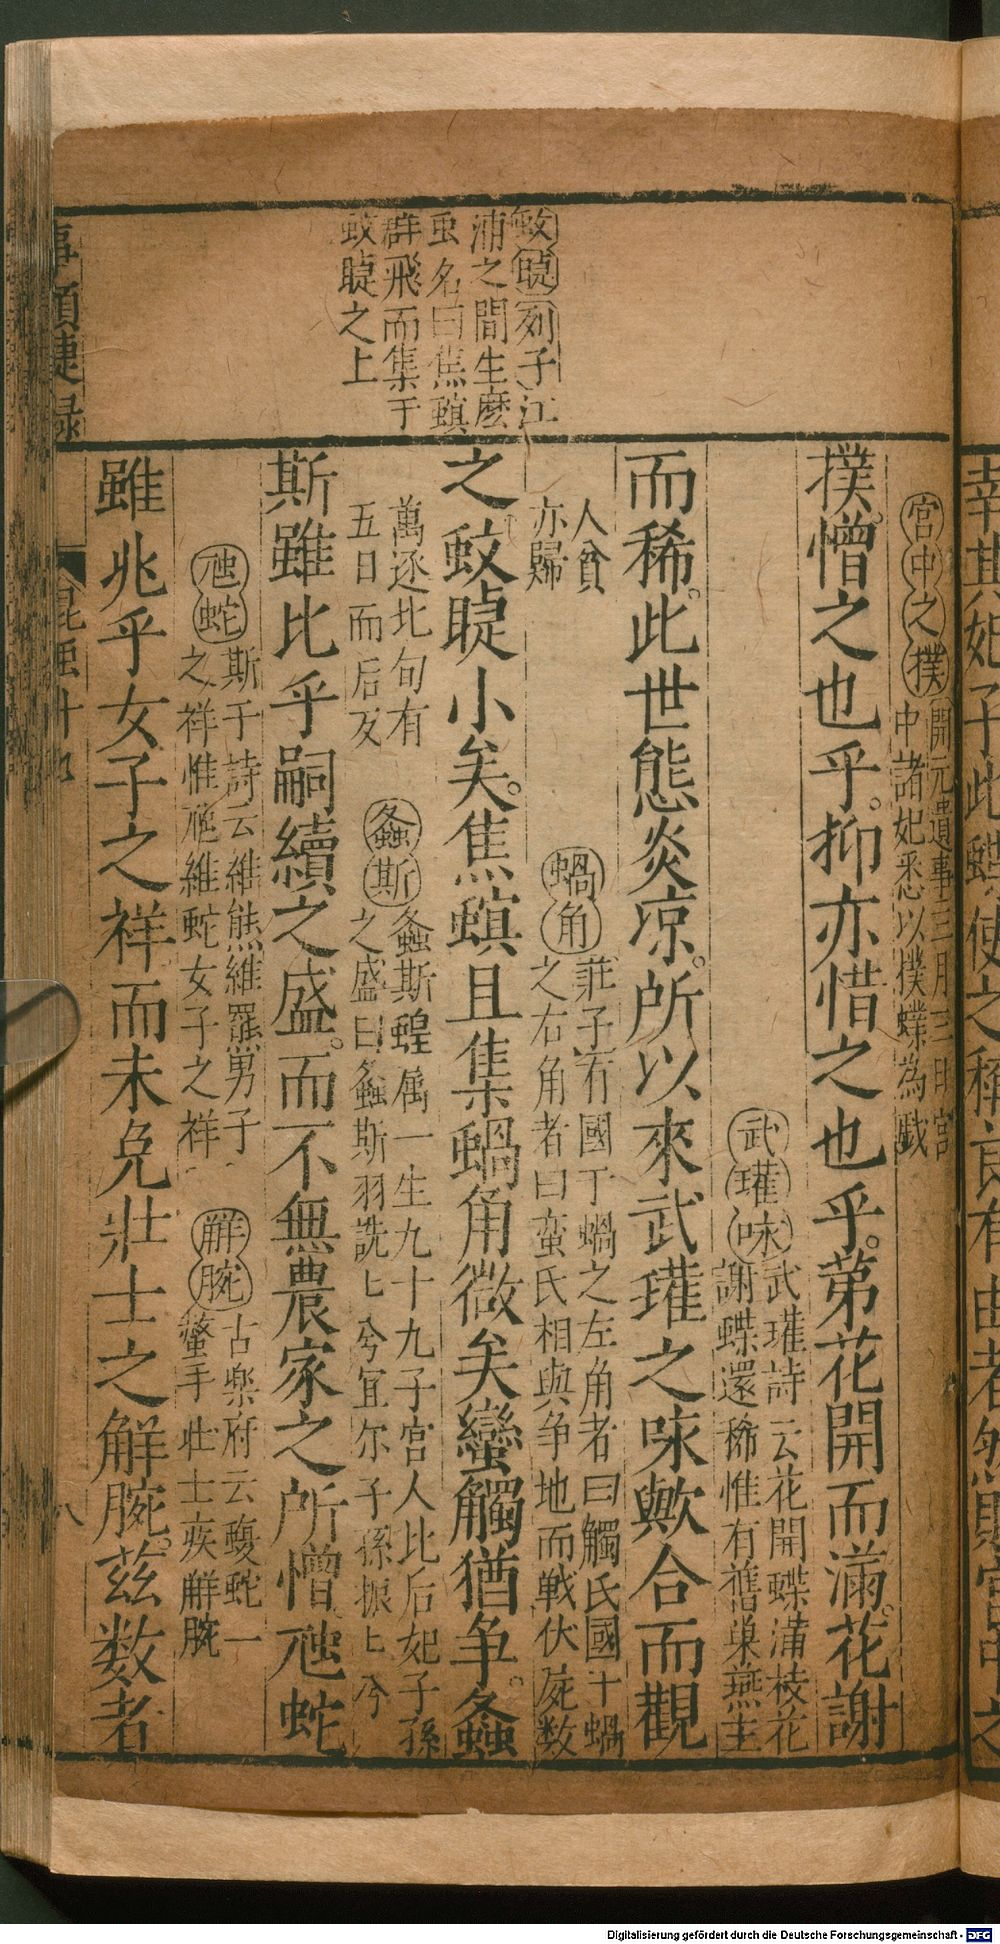 蚊睫列子江
浦之間生麼
虫名曰焦螟
群飛而集于
蚊睫之上
宮中之撲開元遺事三月三日宮
中諸妃悉以撲蝶為戱
撲。憎之也乎。抑亦惜之也乎。苐花開而滿。花謝
武瓘咏武瓘詩云花開蝶滿枝花
謝蝶還稀惟有舊巢燕主
而稀。此世態炎凉。所以來武瓘之咏歟合而觀
人貧
亦歸
蝸角莊子有國于蝸之左角者曰觸氏國于蝸
之右角者曰蛮氏相與争地而戦伏屍数
之蚊睫小矣。焦螟且集蝸角微矣蠻觸猶争。螽
萬逐北旬有
五日而后反
螽斯螽斯蝗属一生九十九子宮人比后妃子孫
之盛曰螽斯羽詵〻兮宜尔子孫振〻兮
斯雖比乎嗣續之盛。而不無農家之所憎。虺蛇
虺蛇斯于詩云維熊維羆男子
之祥惟虺維蛇女子之祥
觧腕古楽府云蝮蛇一
螫手壮士疾觧腕
雖兆乎女子之祥而未免壯士之解腕。茲数者
事類捷録
昆虫十九
八
Digitalisierung gefördert durch die Deutsche Forschungsgemeinschaft - DFG